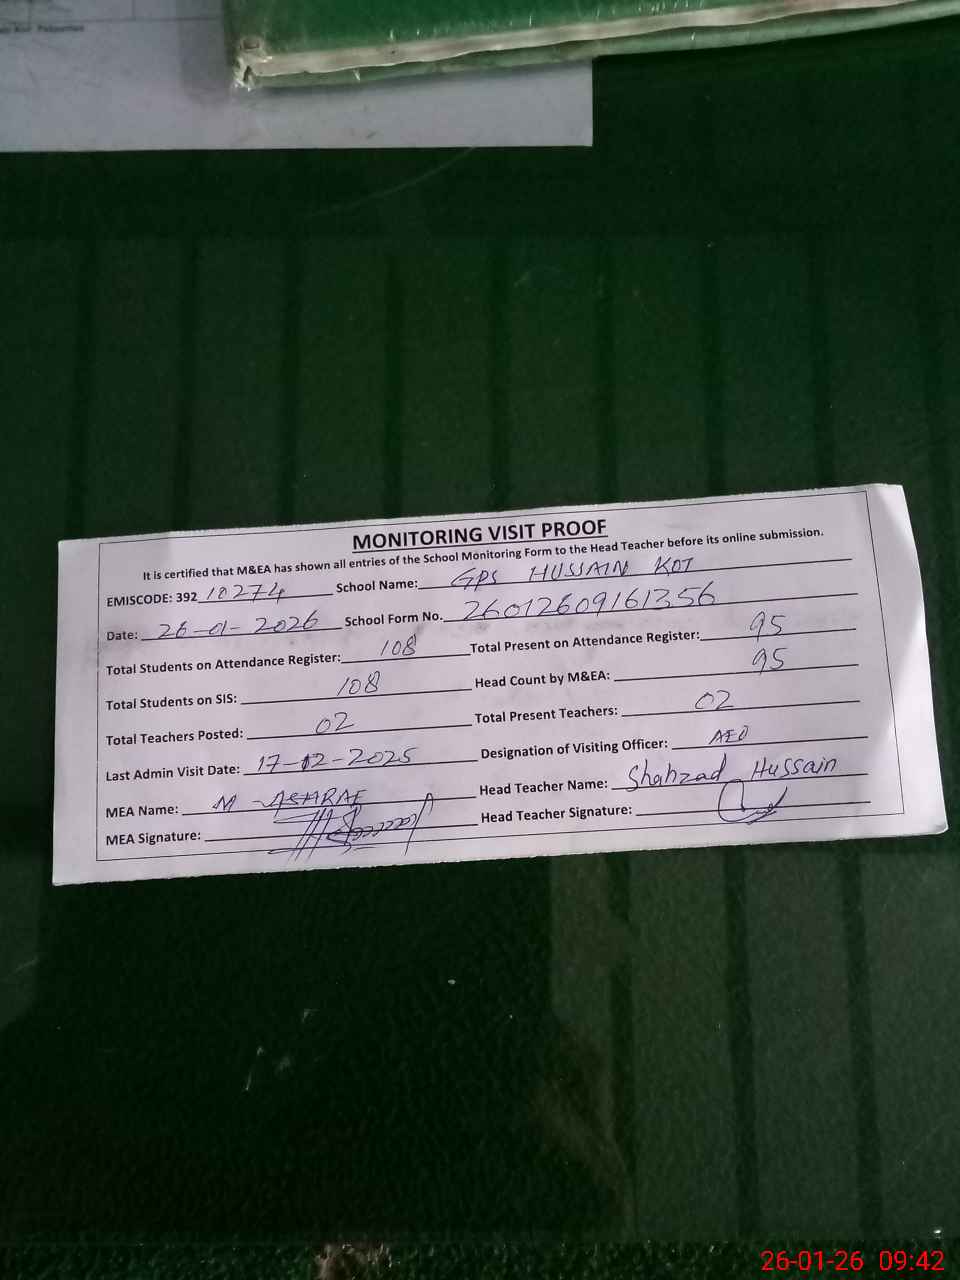 MONITORING VISIT PROOF
It is certified that M&EA has shown all entries of the School Monitoring Form to the Head Teacher before its online submission.
EMISCODE: 392 10274 School Name: GPS HUSSAIN KOT
Date: 26-01-2026 School Form No. 26012609161356
Total Students on Attendance Register: 108 Total Present on Attendance Register: 95
Total Students on SIS: 108 Head Count by M&EA: 95
Total Teachers Posted: 02 Total Present Teachers: 02
Last Admin Visit Date: 17-12-2025 Designation of Visiting Officer: AEO
MEA Name: M ASHRAF Head Teacher Name: Shahzad Hussain
MEA Signature: Head Teacher Signature:
26-01-26 09:42